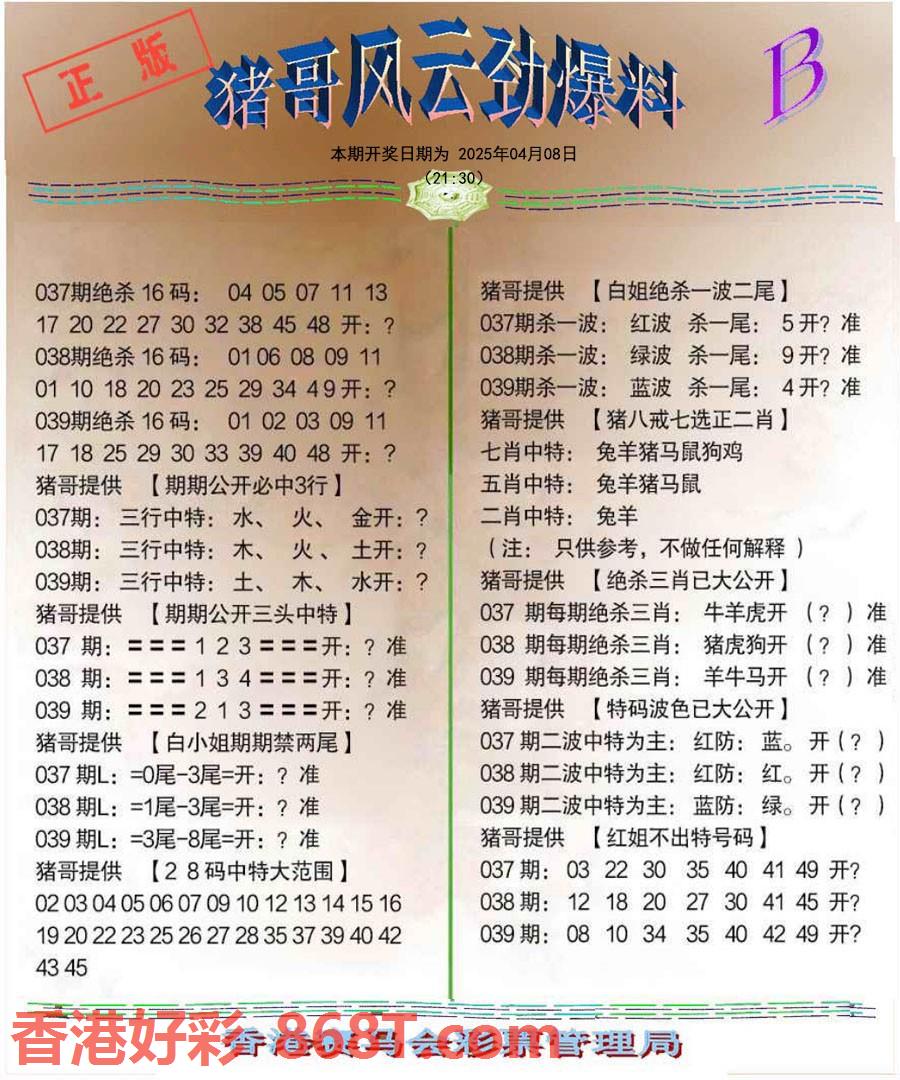 正版
猪哥风云劲爆料
B
本期开奖日期为 2025年04月08日
(21:30)
037期绝杀 16 码： 04 05 07 11 13
17 20 22 27 30 32 38 45 48 开：?
038期绝杀 16 码： 01 06 08 09 11
01 10 18 20 23 25 29 34 4 9 开：?
039期绝杀 16 码： 01 02 03 09 11
17 18 25 29 30 33 39 40 48 开：?
猪哥提供 【期期公开必中3行】
037期： 三行中特：水、 火、 金开：?
038期： 三行中特：木、 火 、 土开：?
039期： 三行中特：土、 木、 水开：?
猪哥提供 【期期公开三头中特】
037 期：=== 1 2 3 ===开：? 准
038 期：=== 1 3 4 ===开：? 准
039 期：=== 2 1 3 ===开：? 准
猪哥提供 【白小姐期期禁两尾】
037 期L：=0尾-3尾=开：? 准
038 期L：=1尾-3尾=开：? 准
039 期L：=3尾-8尾=开：? 准
猪哥提供 【2 8 码中特大范围】
02 03 04 05 06 07 09 10 12 13 14 15 16
19 20 22 23 25 26 27 28 35 37 39 40 42
43 45
猪哥提供 【白姐绝杀一波二尾】
037期杀一波： 红波 杀一尾： 5 开? 准
038期杀一波： 绿波 杀一尾： 9 开? 准
039期杀一波： 蓝波 杀一尾： 4 开? 准
猪哥提供 【猪八戒七选正二肖】
七肖中特： 兔羊猪马鼠狗鸡
五肖中特： 兔羊猪马鼠
二肖中特： 兔羊
(注： 只供参考，不做任何解释 )
猪哥提供 【绝杀三肖已大公开】
037 期每期绝杀三肖： 牛羊虎开 (? ) 准
038 期每期绝杀三肖： 猪虎狗开 (? ) 准
039 期每期绝杀三肖： 羊牛马开 (? ) 准
猪哥提供 【特码波色已大公开】
037 期二波中特为主： 红防： 蓝。 开 (? )
038 期二波中特为主： 红防： 红。 开 (? )
039 期二波中特为主： 蓝防： 绿。 开 (? )
猪哥提供 【红姐不出特号码】
037 期： 03 22 30 35 40 41 49 开?
038 期： 12 18 20 27 30 41 45 开?
039 期： 08 10 34 35 40 42 49 开?
香港好彩 868T.com
香港 马会彩票管理局